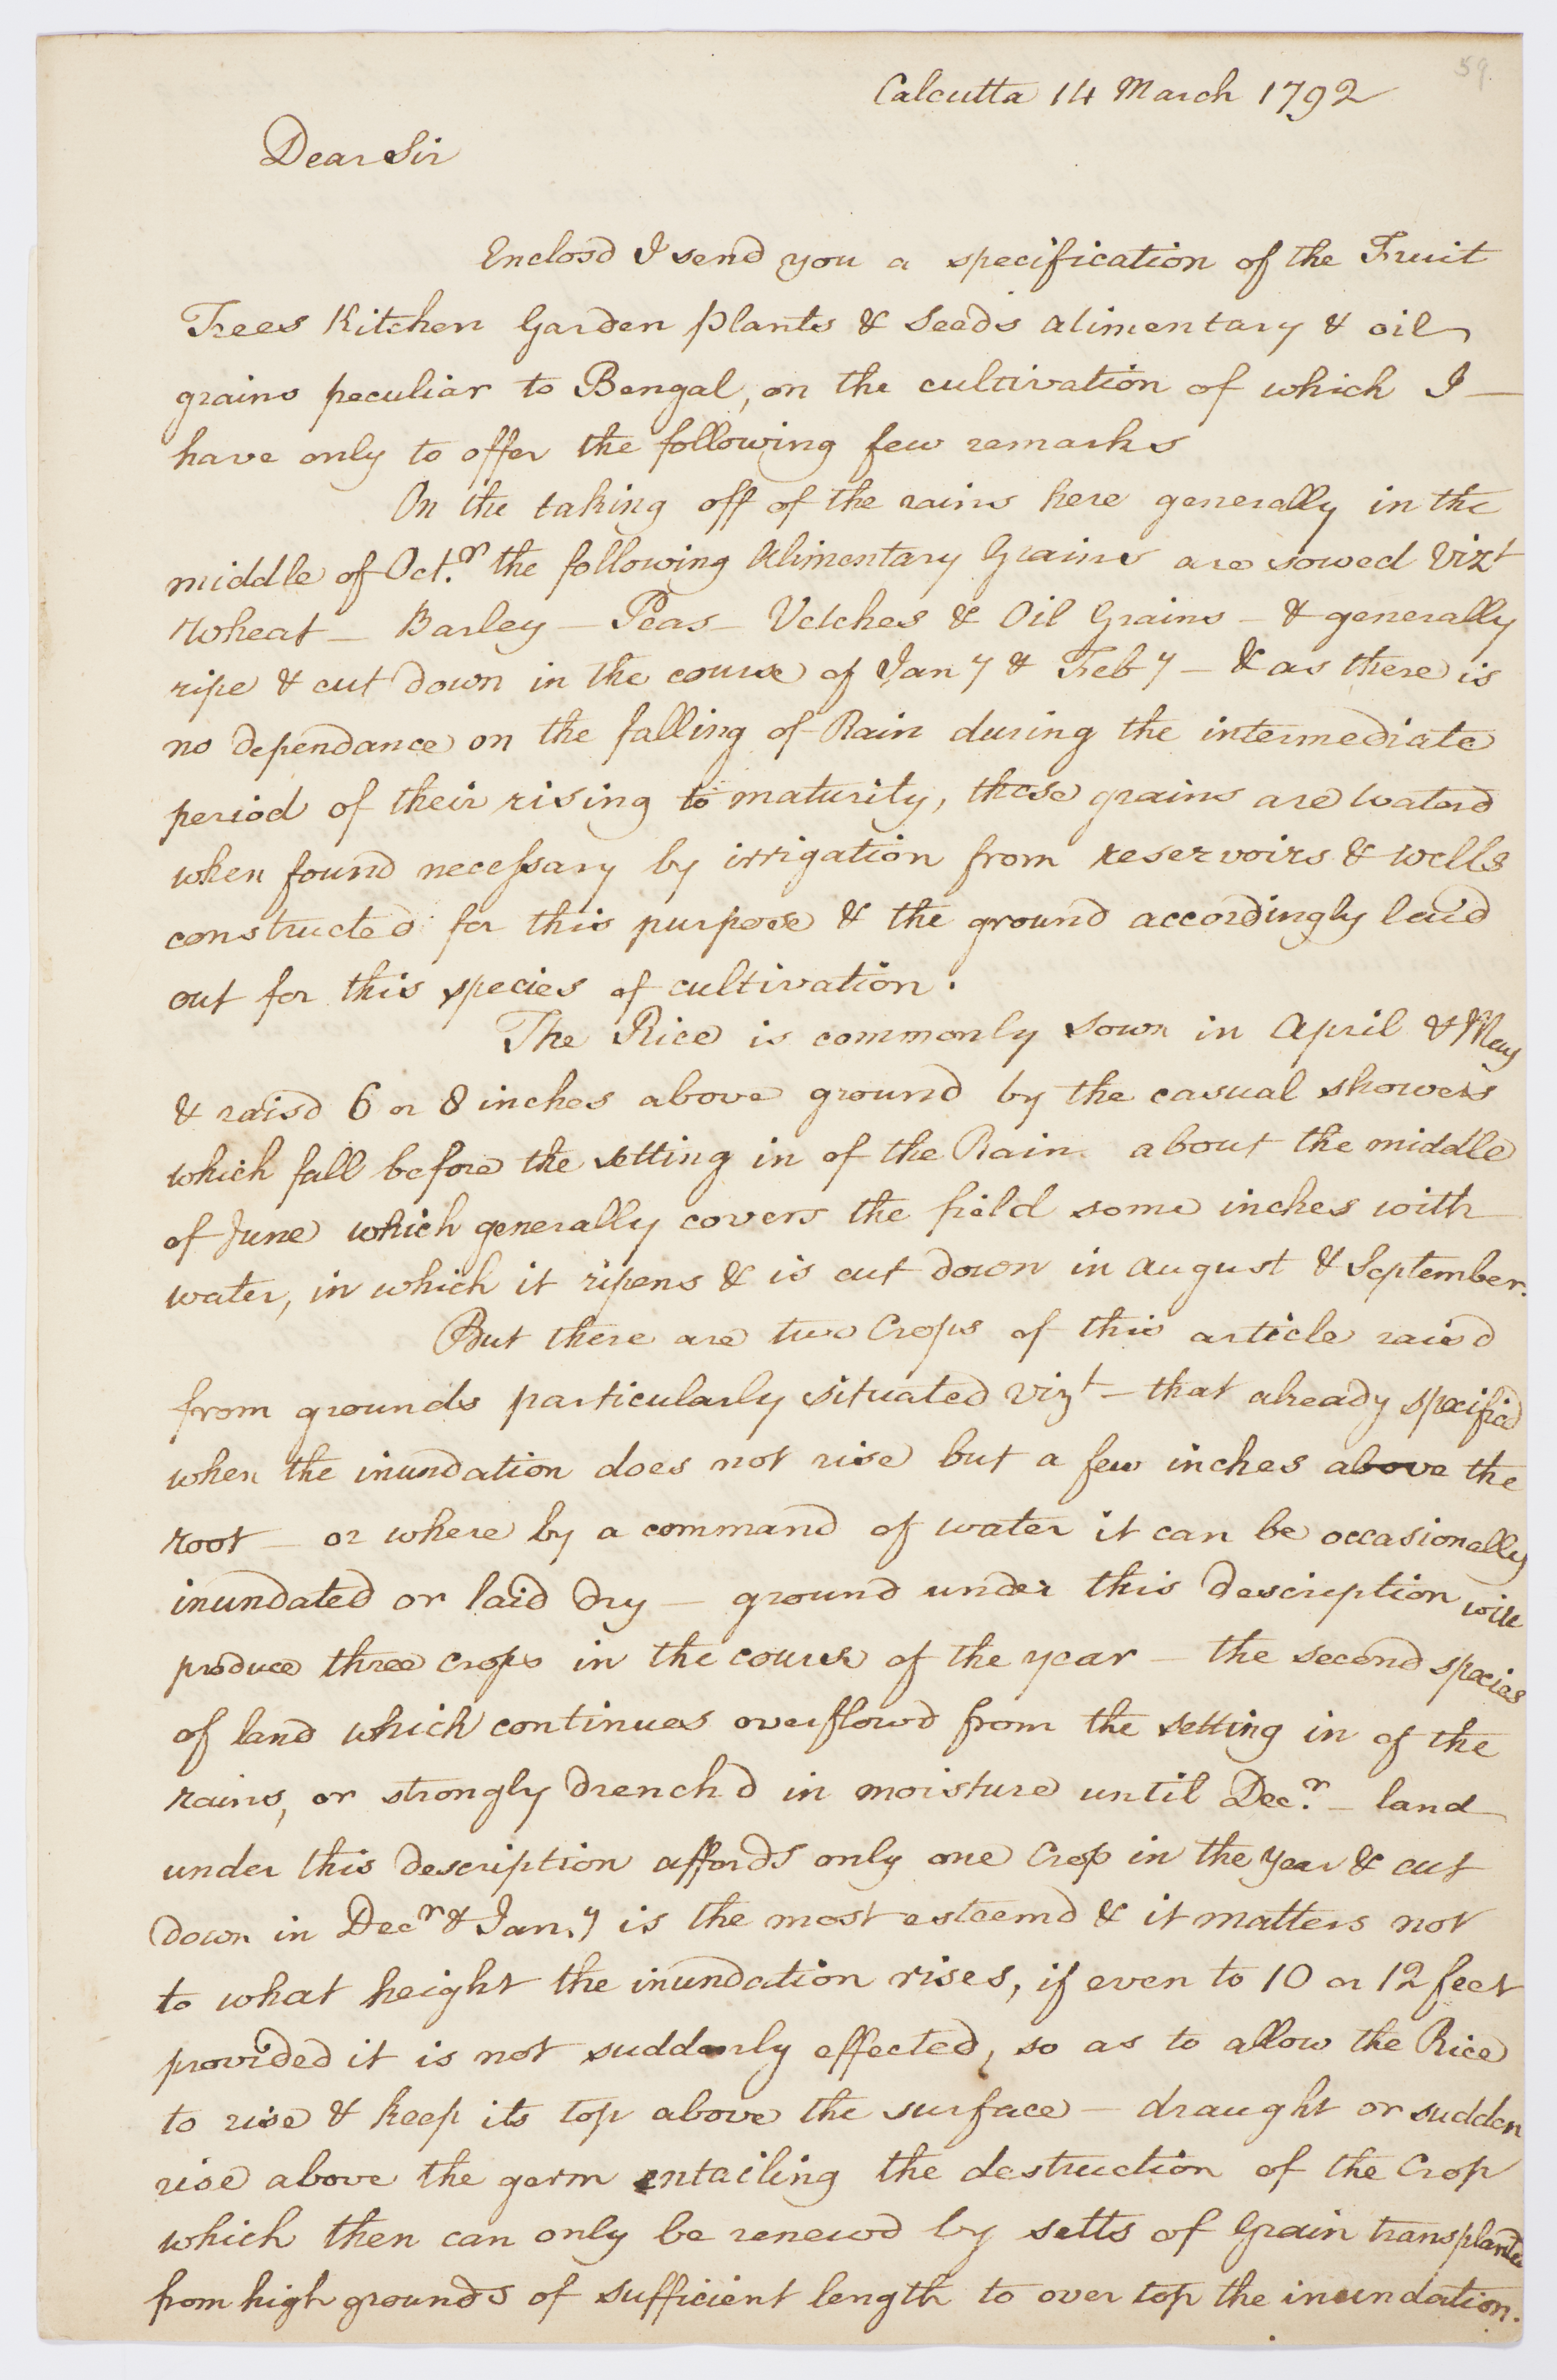 59.
Calcutta 14 March 1792
Dear Sir
Enclosd I send you a specification of the Fruit
Trees Kitchen Garden plants & Seeds alimentary & oil
grains peculiar to Bengal, on the cultivation of which I —
have only to offer the following few remarks
On the taking off of the rains here generally in the
middle of Oct.r the following Alimentary Grains are sowed Vizt
Wheat — Barley — Peas — Vetches & Oil Grains — & generally
ripe & cut down in the course of Jany & Feby — & as there is
no dependance on the falling of Rain during the intermediate
period of their rising to maturity, these grains are waterd
when found necessary by irrigation from reservoirs & wells
constructed for this purpose & the ground accordingly laid
out for this species of cultivation.
The Rice is commonly sown in April & May
& raisd 6 or 8 inches above ground by the casual showers
which fall before the setting in of the Rain about the middle
of June which generally covers the field some inches with
water, in which it ripens & is cut down in August & September.
But there are two Crops of this article raisd
from grounds particularly situated vizt — that already specified
when the inundation does not rise but a few inches above the
root — or where by a command of water it can be occasionally
inundated or laid dry — ground under this description will
produce three crops in the course of the year — the second species
of land which continues overflowd from the setting in of the
rains, or strongly drenchd in moisture until Dec.r — land
under this description affords only one Crop in the year & cut
down in Decr & Jan.y is the most esteemd & it matters not
to what height the inundation rises, if even to 10 or 12 feet
provided it is not suddenly effected, so as to allow the Rice
to rise & keep its top above the surface — draught or sudden
rise above the germ entailing the destruction of the Crop
which then can only be renewd by setts of Grain transplanted
from high grounds of sufficient length to over top the inundation.